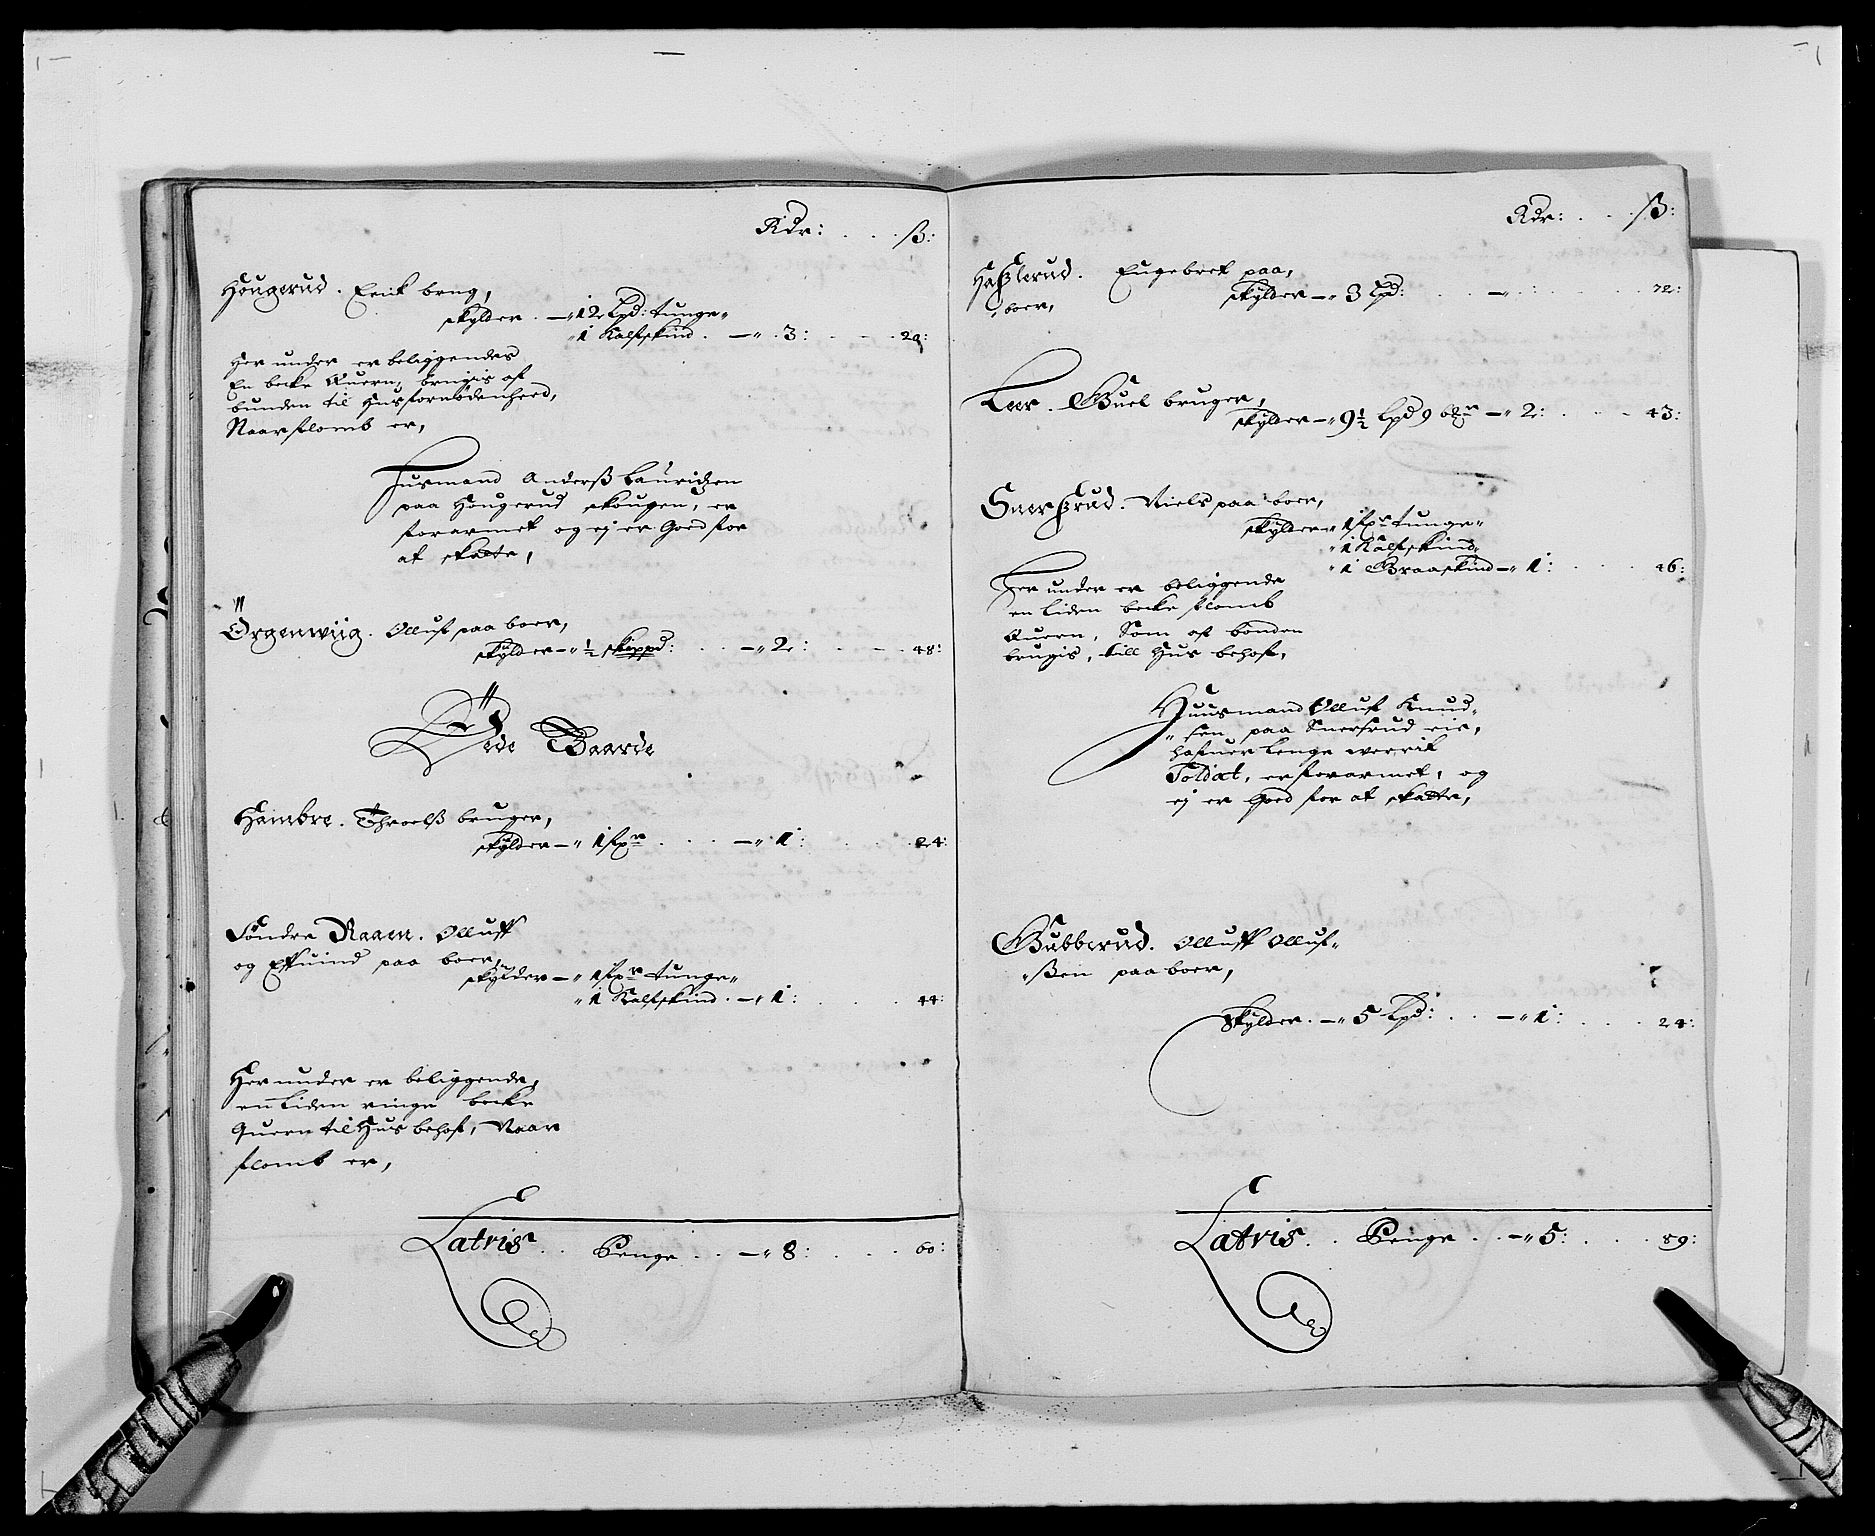 Rdr: . . . ß:
Hougerud. Erik brug,
skylder. —„ 12 Lpd: tunge„
„1 Kalfskind. —„ 3: . . . 20:
Her under er beliggendes
En becke Quern, brugis af
bunden til Husfornödenheed,
Naar flomb er,
Husmand Anderß Lauridzen
paa Hougerud skougen, er
forarmet og ej er Goed for
at skatte,
Örgenwiig. Olluf paa boer,
skylder —„ ½ skippd: . . —„ 2: . . . 48:
Öde Gaarde
Hambre. Throelß bruger,
skylder —„ 1 fxr . . . —„ 1: . . . 24:
Söndre Raaen. Olluff
og Effuind paa boer,
skylder —„ 1 fxr tunge„
„1 Kalfskind. —„ 1: . . . 44:
Her under er beliggende,
en liden ringe becke
Quern til Hus behof, Naar
flomb er,
Latris . . Penge . . —„ 8: . . . 60:
Rdr: . . . ß:
Haßlerud. Engebret paa,
boer,
skylder —„ 3 Lpd: . . —„ : . . . 72:
Leer. Guel bruger,
skylder —„ 9½ Lpd 9 —„ 2: . . . 43:
Snerßrud. Niels paa boer,
skylder „1 fxr tunge„
„1 Kalfskind,
„1 Graaskind —„ 1: . . . 46:
Her under er beliggende
en liden becke flomb
Quern, Som af bonden
brugis, till Hus behof,
Huusmand Olluf Knud„
„sen paa Snersrud eie,
hafuer lenge werrit
Soldat, er forarmet, og
ej er Goed for at skatte,
Gubberud. Olluff Olluf„
„ßen paa boer,
skylder. —„ 5 Lpd: . . —„ 1: . . . 24:
Latris . . Penge . . —„ 5: . . . 89: